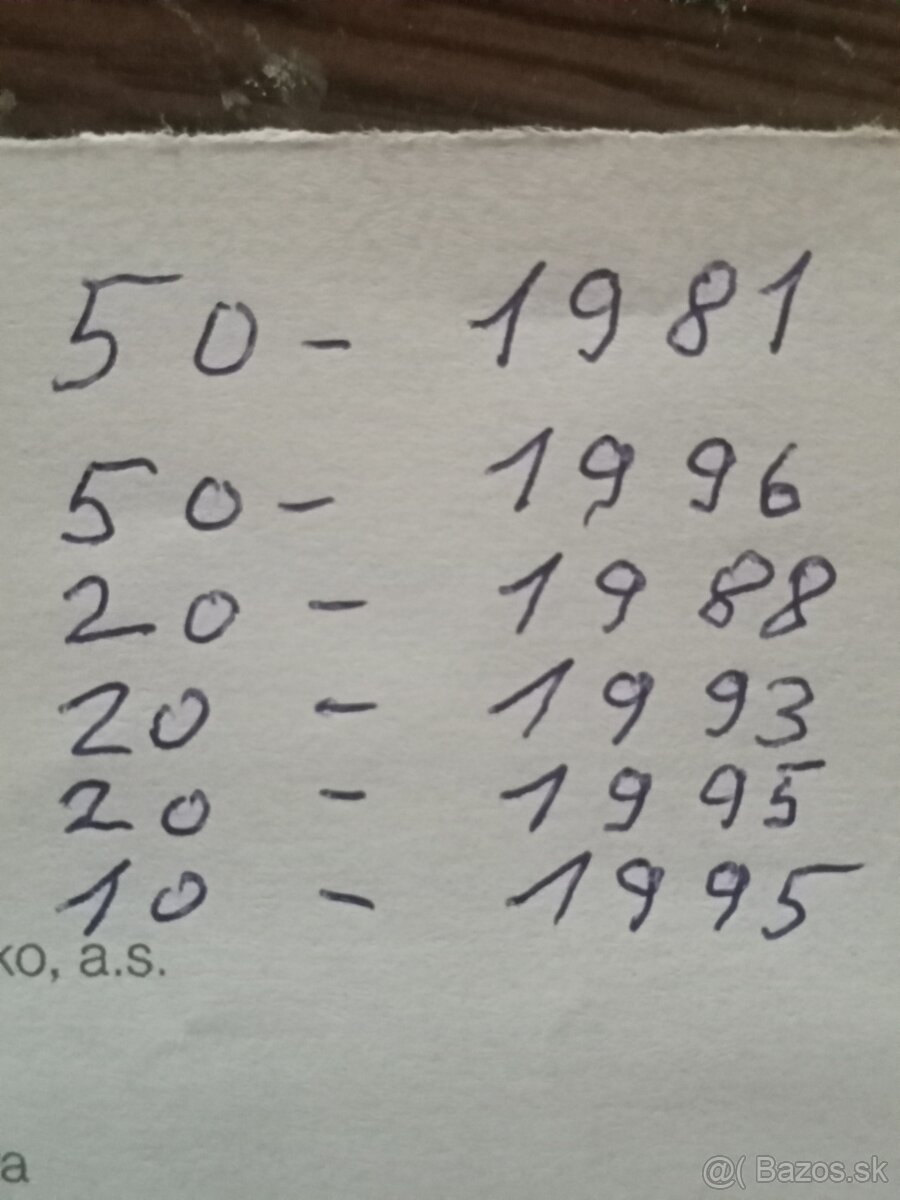 50 - 1981
50 - 1996
20 - 1988
20 - 1993
20 - 1995
10 - 1995
ko, a.s.
a
@( Bazos.sk